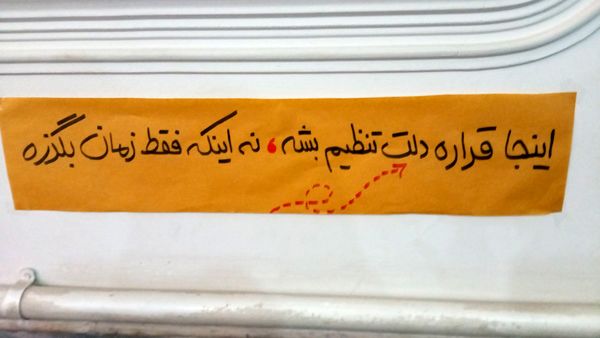 اینجا قراره دلت تنظیم بشه، نه اینکه فقط زمان بگذره